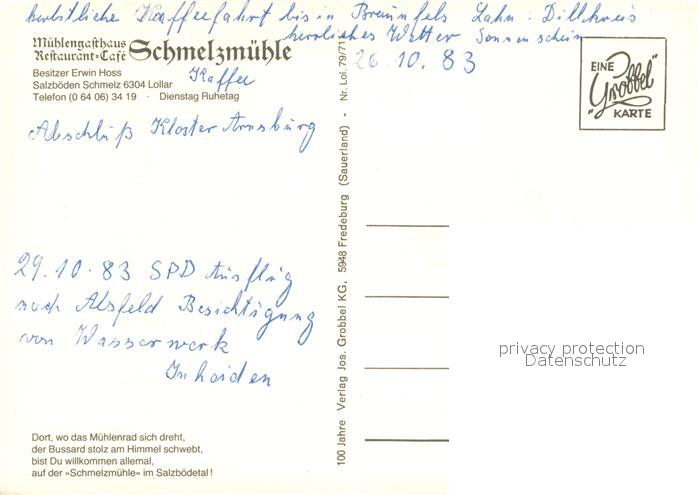 herbstliche Kaffeefahrt bis in Braunfels Lahn-Dillkreis
herrliches Wetter Sonnenschein
26.10.83
Mühlengasthaus
Restaurant-Café Schmelzmühle
Kaffee
Besitzer Erwin Hoss
Salzböden Schmelz 6304 Lollar
Telefon (0 64 06) 34 19 · Dienstag Ruhetag
Abschluß Kloster Arnsburg
29.10.83 SPD Ausflug
nach Alsfeld Besichtigung
von Wasserwerk
Inheiden
Dort, wo das Mühlenrad sich dreht,
der Bussard stolz am Himmel schwebt,
bist Du willkommen allemal,
auf der »Schmelzmühle« im Salzbödetal!
100 Jahre Verlag Jos. Grobbel KG, 5948 Fredeburg (Sauerland) - Nr. Lol. 79/71
EINE
"Grobbel"
KARTE
privacy protection
Datenschutz